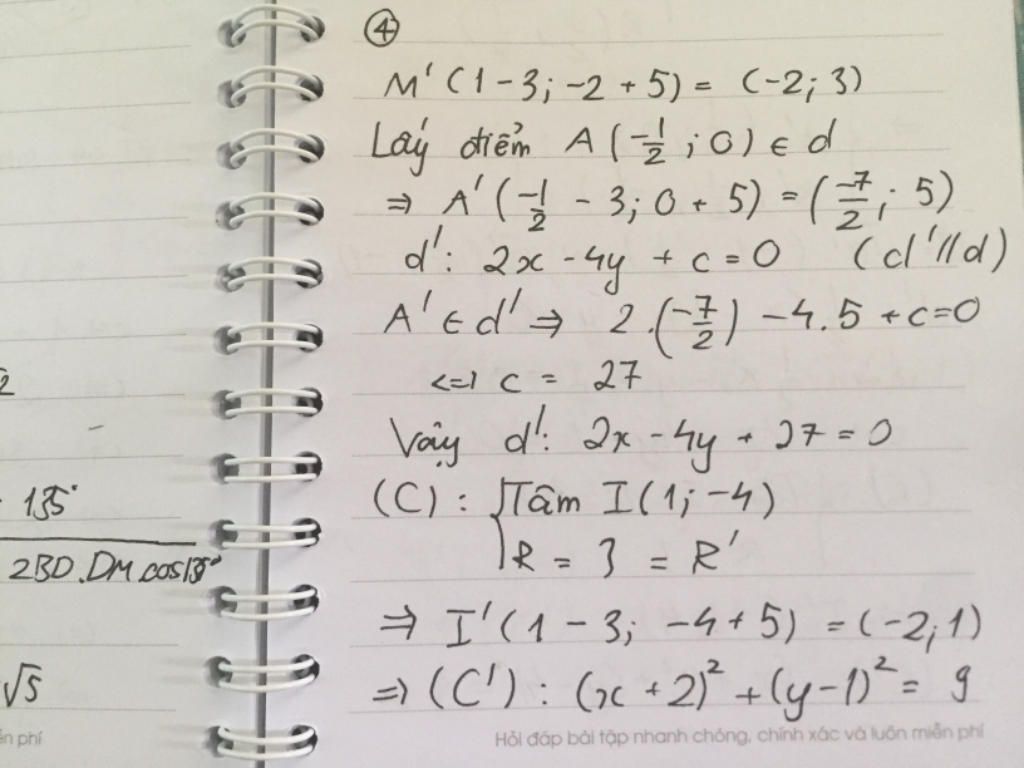 ④
M' (1-3; -2+5) = (-2; 3)
Lấy điểm A (-1/2 ; 0) ∈ d
⇒ A' (-1/2 - 3; 0 + 5) = (-7/2 ; 5)
d': 2x - 4y + c = 0 (d' // d)
A' ∈ d' ⇒ 2.(-7/2) - 4.5 + c = 0
<=> c = 27
Vậy d': 2x - 4y + 27 = 0
(C) : { Tâm I(1; -4)
R = 3 = R'
⇒ I' (1 - 3; -4 + 5) = (-2; 1)
⇒ (C') : (x + 2)² + (y - 1)² = 9
Hỏi đáp bài tập nhanh chóng, chính xác và luôn miễn phí
2
135°
2BD.DM.cos135°
√5
ễn phí